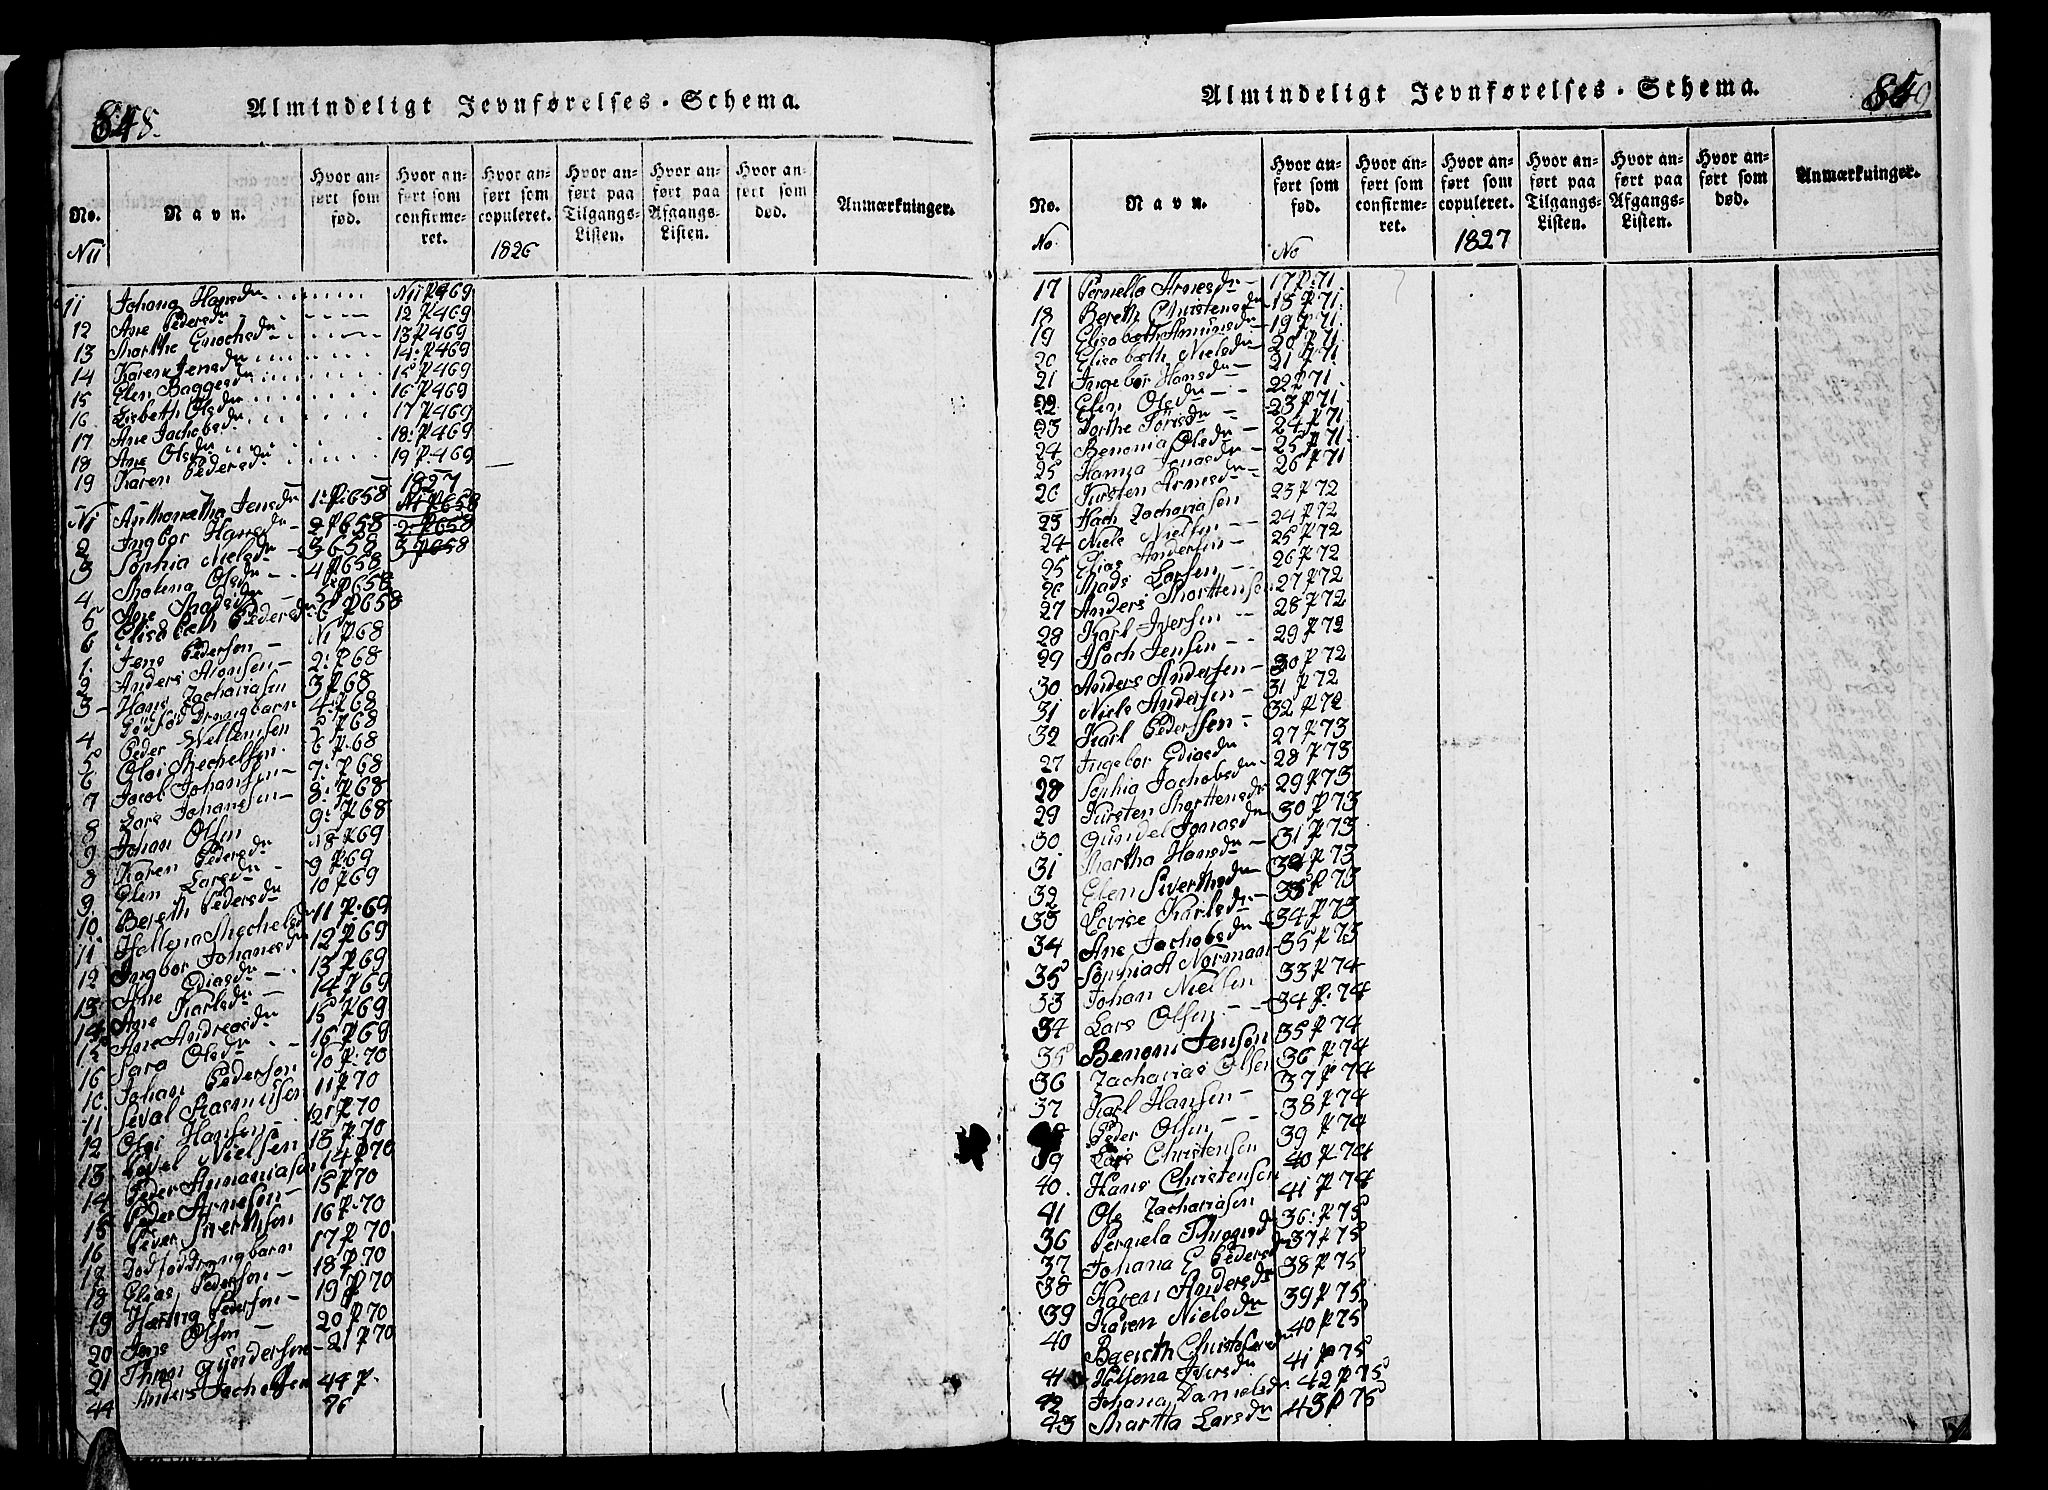 848.
Almindeligt Jevnførelses-Schema.
No.
Navn.
Hvor anført som fød.
Hvor anført som confirmeret.
Hvor anført som copuleret.
Hvor anført paa Tilgangs-Listen.
Hvor anført paa Afgangs-Listen.
Hvor anført som død.
Anmærkninger.
1826
11 Johana Hansdr N11 P469
12 Ane Pedersdr 12 P469
13 Marthe Enochsdr 13 P469
14 Karen Jensdr 14 P469
15 Elen Baggesdr 15 P469
16 Lisbeth Olsdr 16 P469
17 Ane Jachobsdr 17 P469
18 Ane Olsdr 18 P469
19 Karen Pedersdr 19 P469
1827
N1 Anthonetha Jensdr 1 P658 N1 P658
2 Ingbor Hansdr 2 P658 2 P658
3 Sophia Nielsdr 3 658 3 P658
4 Malena Olsdr 4 P658
5 Ane Madsdr 5 P658
6 Elisabeth Pedersdr 6 P658
1. Jens Pedersen N1 P68
2 Anders Aronsen 2 P68
3 Hans Zachariasen 3 P68
4 Dødfød Drengbarn 4 P68
5 Peder Wellemsen 5 P68
6 Oloi Mechelsen 6 P68
7 Jacob Johansen 7 P68
8 Lars Johansen 8 P68
9 Johan Olsen 9 P68
8 Karen Pedersdr N8 P69
9 Elen Larsdr 9 P69
10. Bereth Pedersdr 10 P69
11. Hellena Mechelsdr 11 P69
12 Ingbor Johanesdr 12 P69
13 Ane Ediasdr 13 P69
14 Ane Karlsdr 14 P69
15 Ane Andreasdr 15 P69
16 Sara Olsdr 16 P69
10. Johan Pedersen 10 P70
11 Seval Rasmusen 11 P70
12 Oloi Hansen 12 P70
13 Nielsen 13 P70
14 Peder Annaniasen 14 P70
15 Peder Arnesen 15 P70
16 Peder Siverthsen 16 P70
17 Dødfød Drengbarn 17 P70
18 Elias Pedersen 18 P70
19 Hartvig Pedersen 19 P70
20 Jens Olsen 20 P70
21 Thomi Gundersen 21 P70
44 Anders Jachobsen 44 P. 76
849
Almindeligt Jevnførelses-Schema.
No.
Navn.
Hvor anført som fød.
Hvor anført som confirmeret.
Hvor anført som copuleret.
Hvor anført paa Tilgangs-Listen.
Hvor anført paa Afgangs-Listen.
Hvor anført som død.
Anmærkninger.
No. No 1827
17 Pernella Arnesdr 17 P71
18 Bereth Christensdr 18 P71
19 Elisabeth Amunsdr 19 P71
20 Elisabeth Nielsdr 20 P71
21 Ingebor Hansdr 21 P71
22 Elen Olsdr 22 P71
23 Dorthe Torisdr 23 P71
24 Benonia Olsdr 24 P71
25 Hanna Jonasdr 25 P71
26 Kirsten Arnesdr 26 P71
23 Isach Zachariasen 23 P72
24 Niels Nielsen 24 P72
25 Elias Andersen 25 P72
26 Mads Larsen 26 P72
27 Anders Morttensen 27 P72
28 Karl Iversen 28 P72
29 Isach Jensen 29 P72
30 Anders Andersen 30 P72
31 Niels Andersen 31 P72
32 Karl Pedersen 32 P72
27 Ingebor Ediasdr 27 P73
28 Sophia Jachobsdr 28 P73
29 Kirsten Morttensdr 29 P73
30 Gundel Jonasdr 30 P73
31 Martha Hansdr 31 P73
32 Elen Siverthsdr 32 P73
33 Lovise Karlsdr 33 P73
34 Ane Jachobsdr 34 P73
35 Sophia A Normann 35 P73
33 Johan Nielsen 33 P74
34 Lars Olsen 34 P74
35 Benoni Jensen 35 P74
36 Zacharias Olsen 36 P74
37 Karl Hansen 37 P74
Peder Olsen 38 P74
39 Lars Christensen 39 P74
40. Hans Christensen 40 P74
41 Ole Zachariasen 41 P74
36 Pernela 36 P75
37 Johana E Pedersdr 37 P75
38 Karen Andersdr 38 P75
39 Karen Nielsdr 39 P75
40 Bereth Christofersdr 40 P75
41 Hellena Iversdr 41 P75
42 Johana Danielsdr 42 P75
43 Martha Larsdr 43 P75